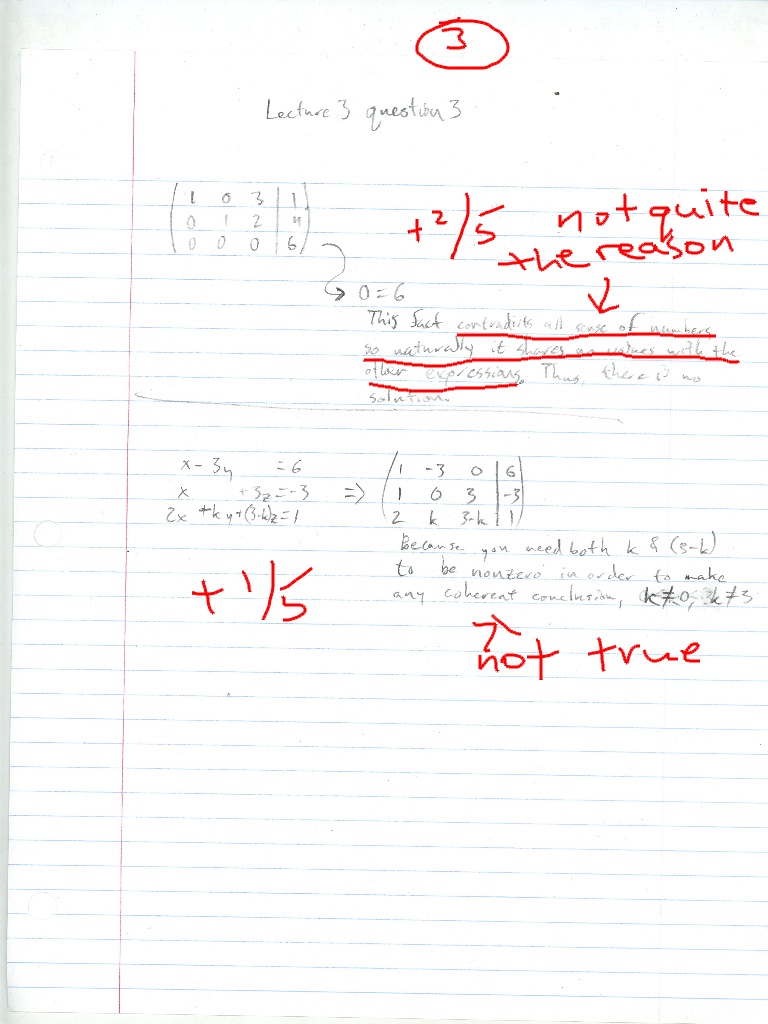 3
Lecture 3 question 3
1 0 3 | 1
0 1 2 | 4
0 0 0 | 6
+2/5 not quite
the reason
0=6
This fact contradicts all sense of numbers
so naturally it shares no values with the
other expressions. Thus, there is no
solution.
x - 3y = 6
x + 3z = -3
2x + ky + (3-k)z = 1
=>
1 -3 0 | 6
1 0 3 | -3
2 k 3-k | 1
Because you need both k & (3-k)
to be nonzero in order to make
any coherent conclusion, k≠0, k≠3
+1/5
not true